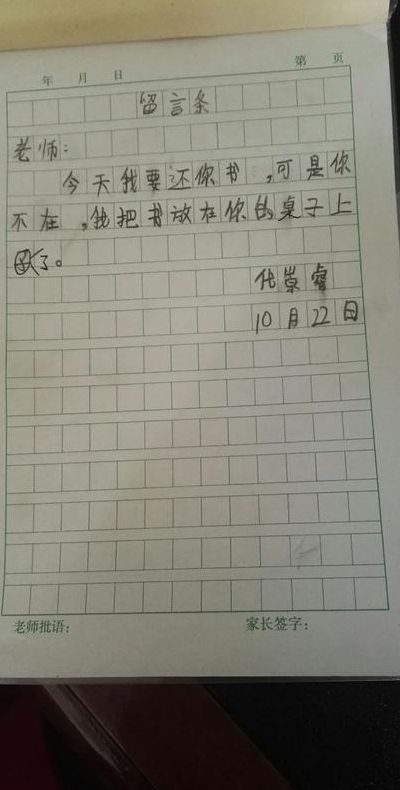 年 月 日 第 页
留言条
老师:
今天我要还你书,可是你
不在,我把书放在你的桌子上
了。
化崇睿
10月22日
老师批语: 家长签字: